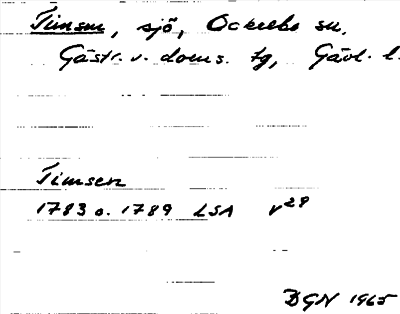 Timsen, sjö, Ockelbo sn,
Gästr. v. doms. tg, Gävl. l.
Timsen
1783 o. 1789 LSA v28
BGN 1965